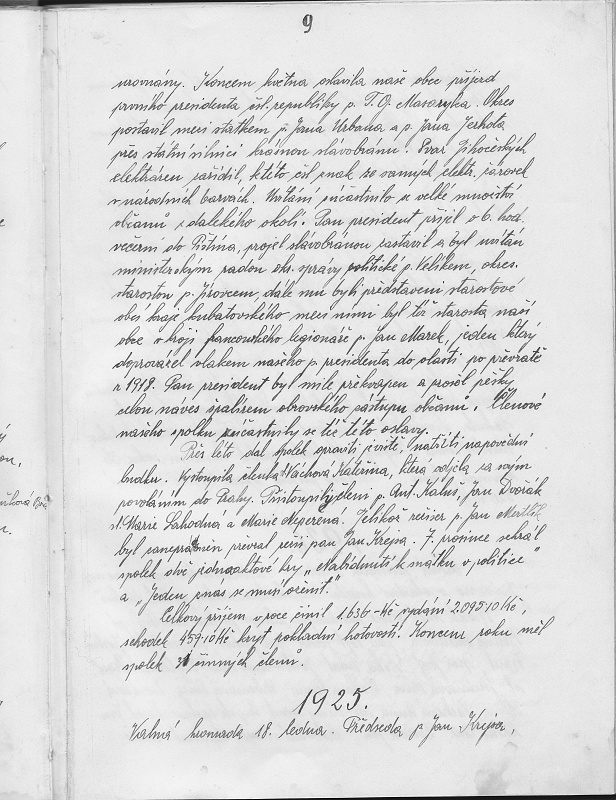 9
urovnány. Koncem května oslavila naše obec příjezd
prvního presidenta čsl. republiky p. T. G. Masaryka. Okres
postavil mezi statkem p. Jana Urbana a p. Jana Jerhota
přes státní silnici krásnou slávobránu. Svaz Jihočeských
elektráren zařídil, k této čsl. znak ze samých elektr. žárovek
v národních barvách. Uvítání zúčastnilo se velké množství
občanů z dalekého okolí. Pan president přijel o 6. hod.
večerní do Pištína, projel slávobránou zastavil a byl uvítán
ministerským radou oks. správy politické p. Velikem, okres.
starostou p. , dále mu byli představeni starostové
obcí kraje hubatovského mezi nimi byl též starosta naší
obce v kroji francouzského legionáře p. Jan Marek, jeden který
doprovázel vlakem našeho p. presidenta do vlasti po převratě
r. 1918. Pan president byl mile překvapen a prošel pěšky
celou náves špalírem obrovského zástupu občanů. Členové
našeho spolku zúčastnily se též této oslavy.
Přes léto dal spolek spraviti jeviště, natříti nápovědní
budku. Vystoupila členka Váchová Kateřina, která odjela za svým
povoláním do Prahy. Přistoupily členi p. Ant. Kaluš, Jan Dvořák
sl. Marie Lahodná a Marie Nejezená. Jelikož režiser p. Jan
byl zaneprázdněn převzal režii pan Jan Krejsa. 7. prosince sehrál
spolek dvě jednoaktové hry „Nabídnutí k sňatku v politice"
a „Jeden z nás se musí oženit."
Celkový příjem v roce činil 1.636 - Kč vydání 2.095·10 Kč,
schodek 459·10 Kč kryt pokladní hotovostí. Koncem roku měl
spolek 31 činných členů.
1925.
Valná hromada 18. ledna. Předseda p. Jan Krejsa,